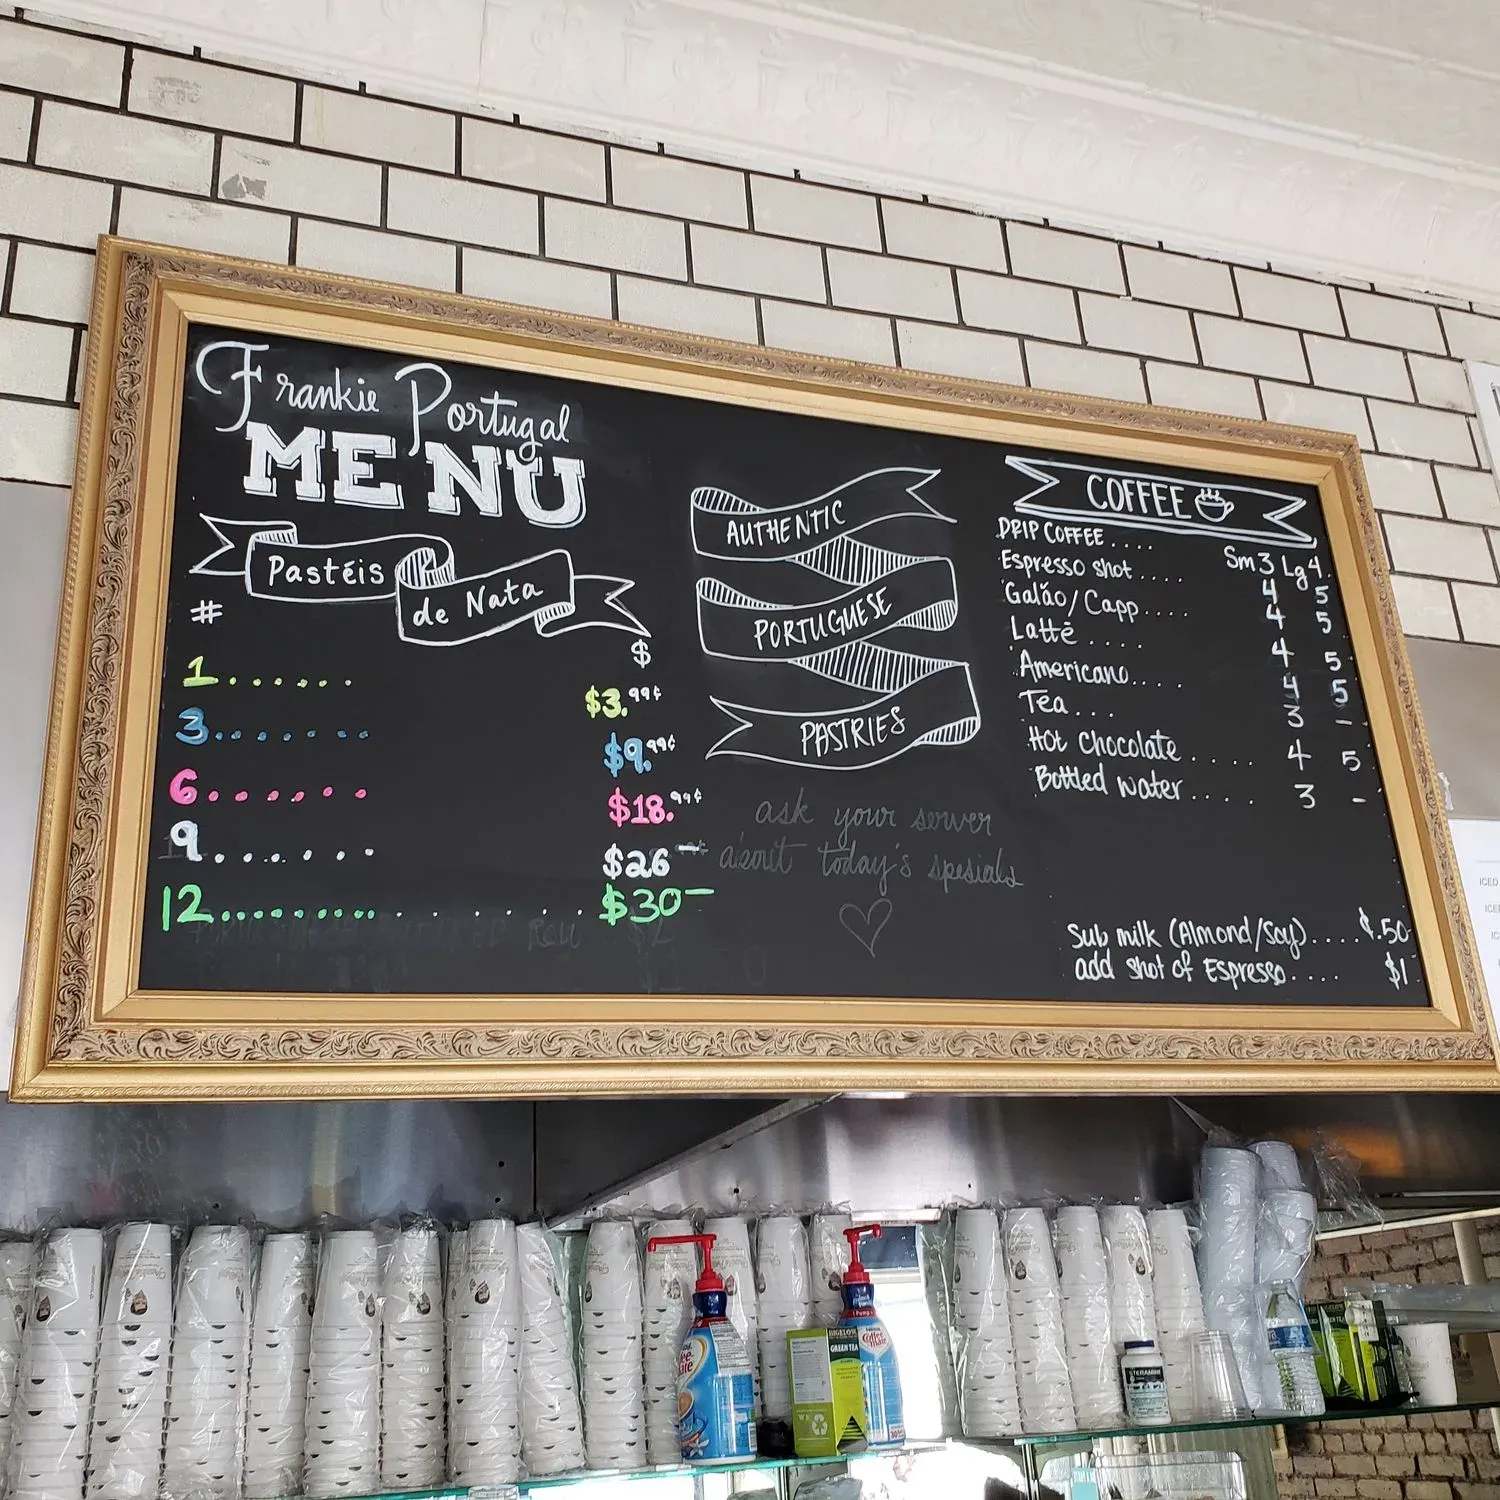 Frankie Portugal
MENU
Pastéis
de Nata
# $
1....... $3.99¢
3....... $9.99¢
6...... $18.99¢
9....... $26—
12......... $30—
AUTHENTIC
PORTUGUESE
PASTRIES
ask your server
about today's spesials
COFFEE
DRIP COFFEE.... Sm 3 Lg 4.
Espresso shot.... 4 5
Galão/Capp.... 4 5
Latté .... 4 5
Americano.... 4 5
Tea... 3 -
Hot Chocolate .... 4 5
Bottled Water .... 3 -
Sub milk (Almond/Soy).... $.50
add shot of Espresso.... $1
BIGELOW
GREEN TEA
Coffee
mate